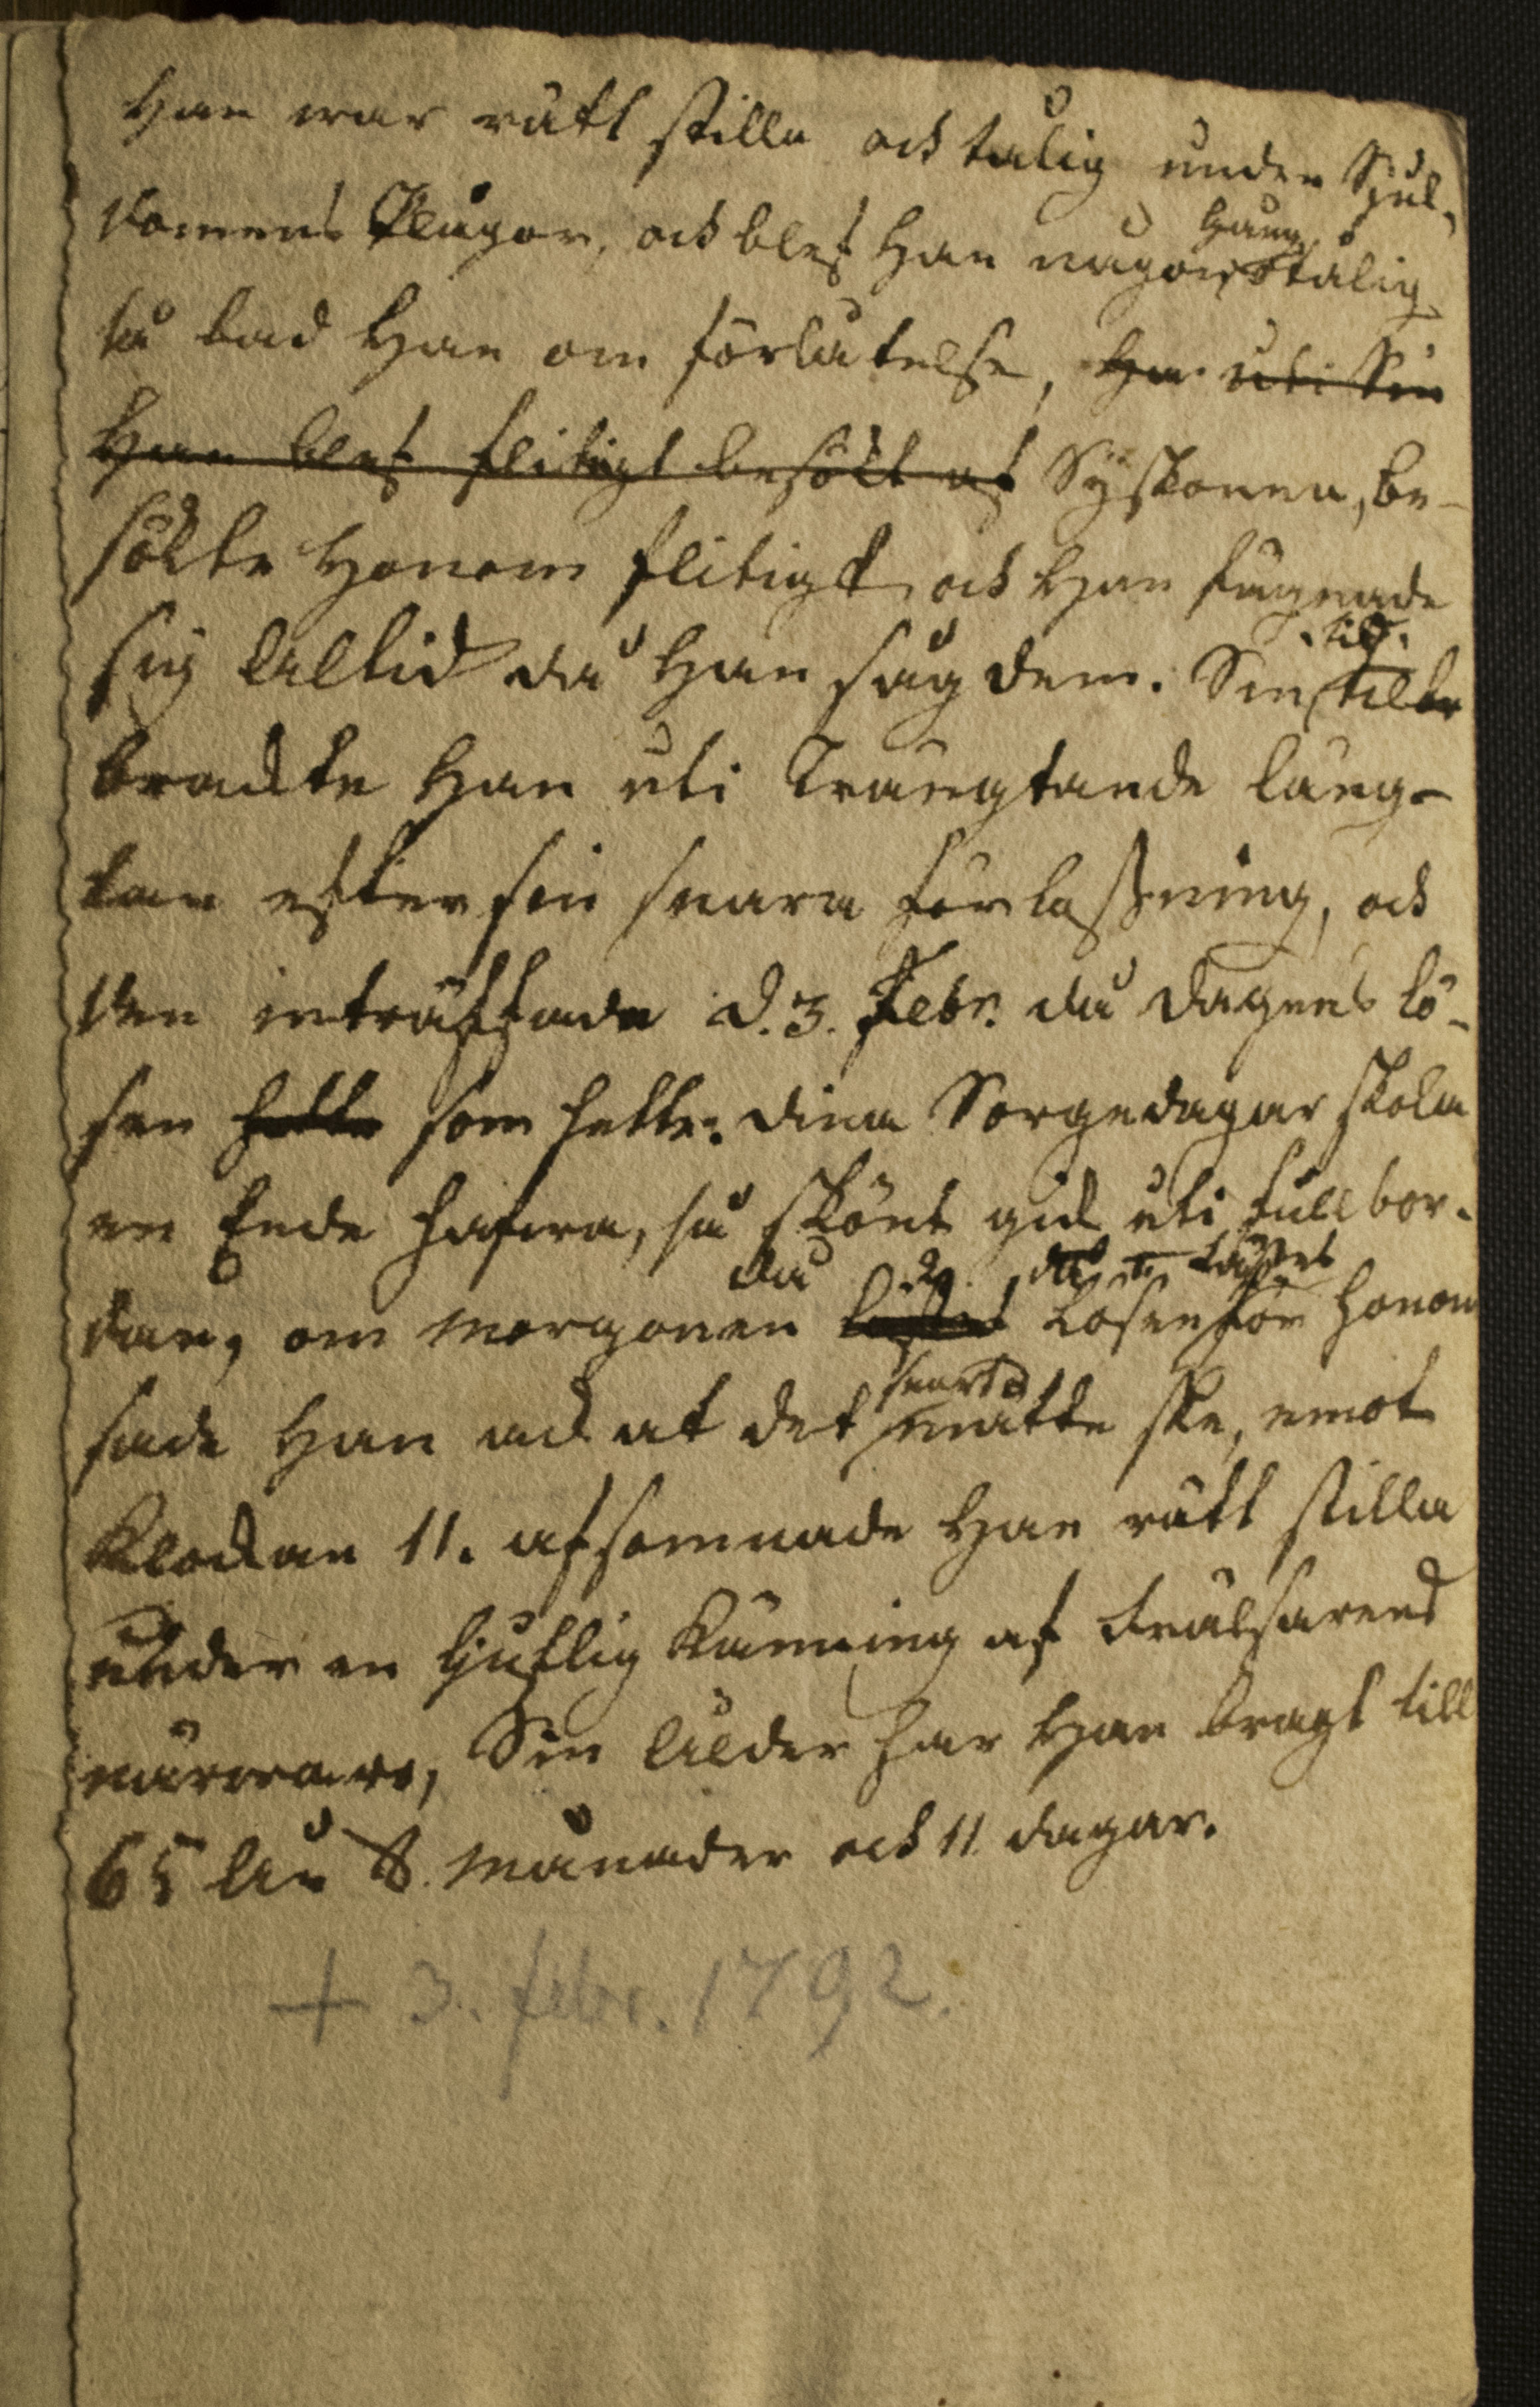 Han war rätt stilla och tålig under Siuk-
domens Plågor, och blef Han någon gång otålig
så bad Han om förlåtelse, Han uti Sin
Han blef flitigt besökt af Syskonen, be-
sökte Honom flitigt, och Han fägnade
sig alltid då Han såg dem. Sin tid till
brackte Han uti trängtande läng-
tan efter sin snara förlassning, och
den inträffade d. 3. Febr. då dagens lö-
sen hette som hette: dina Sorgedagar skola
en Ende hafwa, så skönt gick uti full bor-
dan, om morgonen då lästes Losen för Honom
sade Han ack at det snart måtte ske, emot
Klockan 11. afsomnade Han rätt stilla
under en ljuflig Känning af Frälsarens
närwaro, Sin ålder har Han bragt till
65 åhr 8. månader och 11 dagar.
+ 3. febr. 1792.